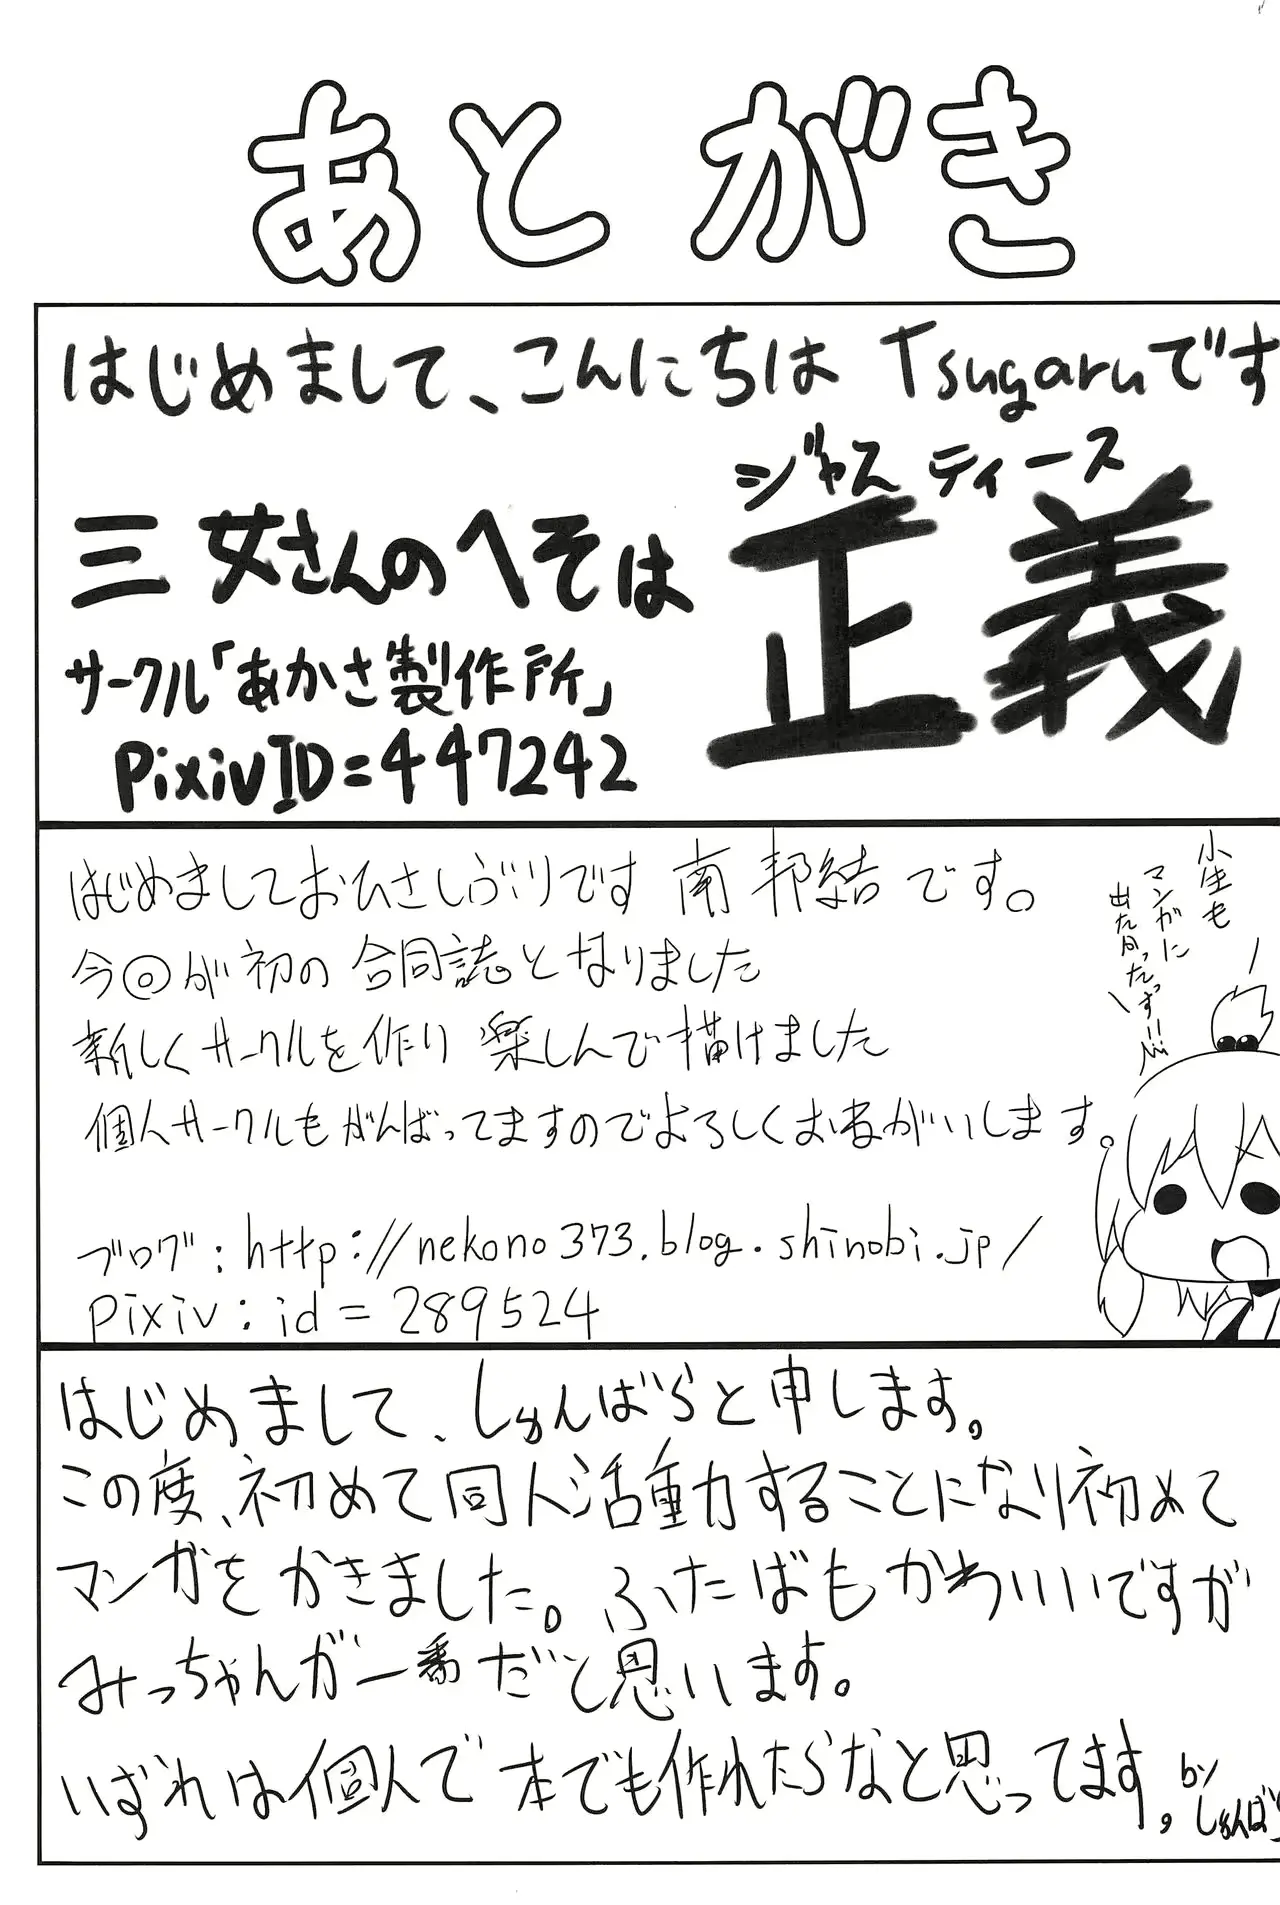 あとがき
はじめまして、こんにちは Tsugaruです
ジャスティース
三女さんのへそは正義
サークル「あかさ製作所」
PixivID=447242
はじめましておひさしぶりです 南 邦結 です。
今回が初の合同誌となりました
新しくサークルを作り 楽しんで描けました
個人サークルもがんばってますのでよろしくおねがいします。
ブログ:http://nekono373.blog.shinobi.jp/
pixiv:id=289524
小生も
マンガに
出たかったっす!!
はじめまして、しゅんばらと申します。
この度、初めて同人活動することになり初めて
マンガをかきました。ふたばもかわいいですが
みっちゃんが一番だと思います。
いずれは個人で本でも作れたらなと思ってます。
by
しゅんばら